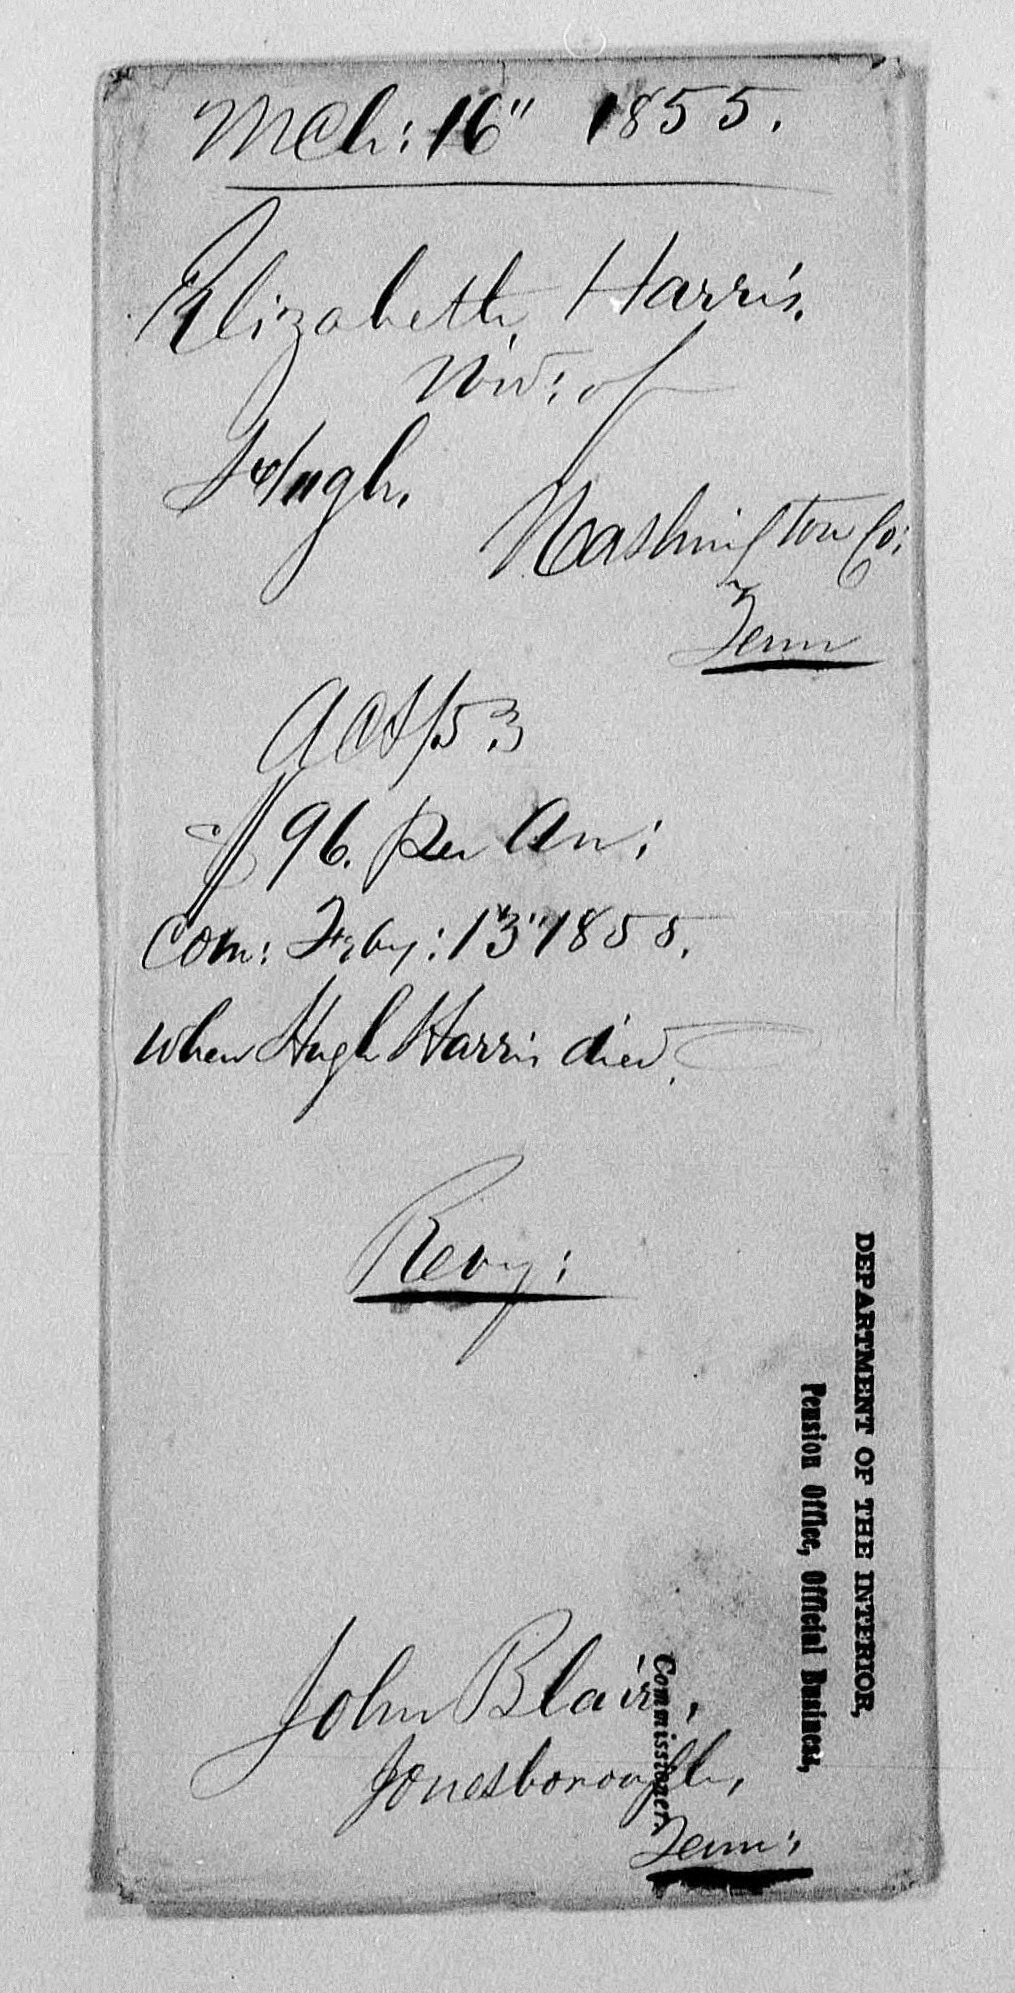 Mch: 16" 1855.
Elizabeth Harris.
Wid: of
Hugh.
Washington Co:
Tenn
Act/53
$96. Per An:
Com: Feby: 13" 1855.
when Hugh Harris died.
Revy:
DEPARTMENT OF THE INTERIOR,
Pension Office, Official Business,
Commissioner.
John Blair,
Jonesborough,
Tenn: